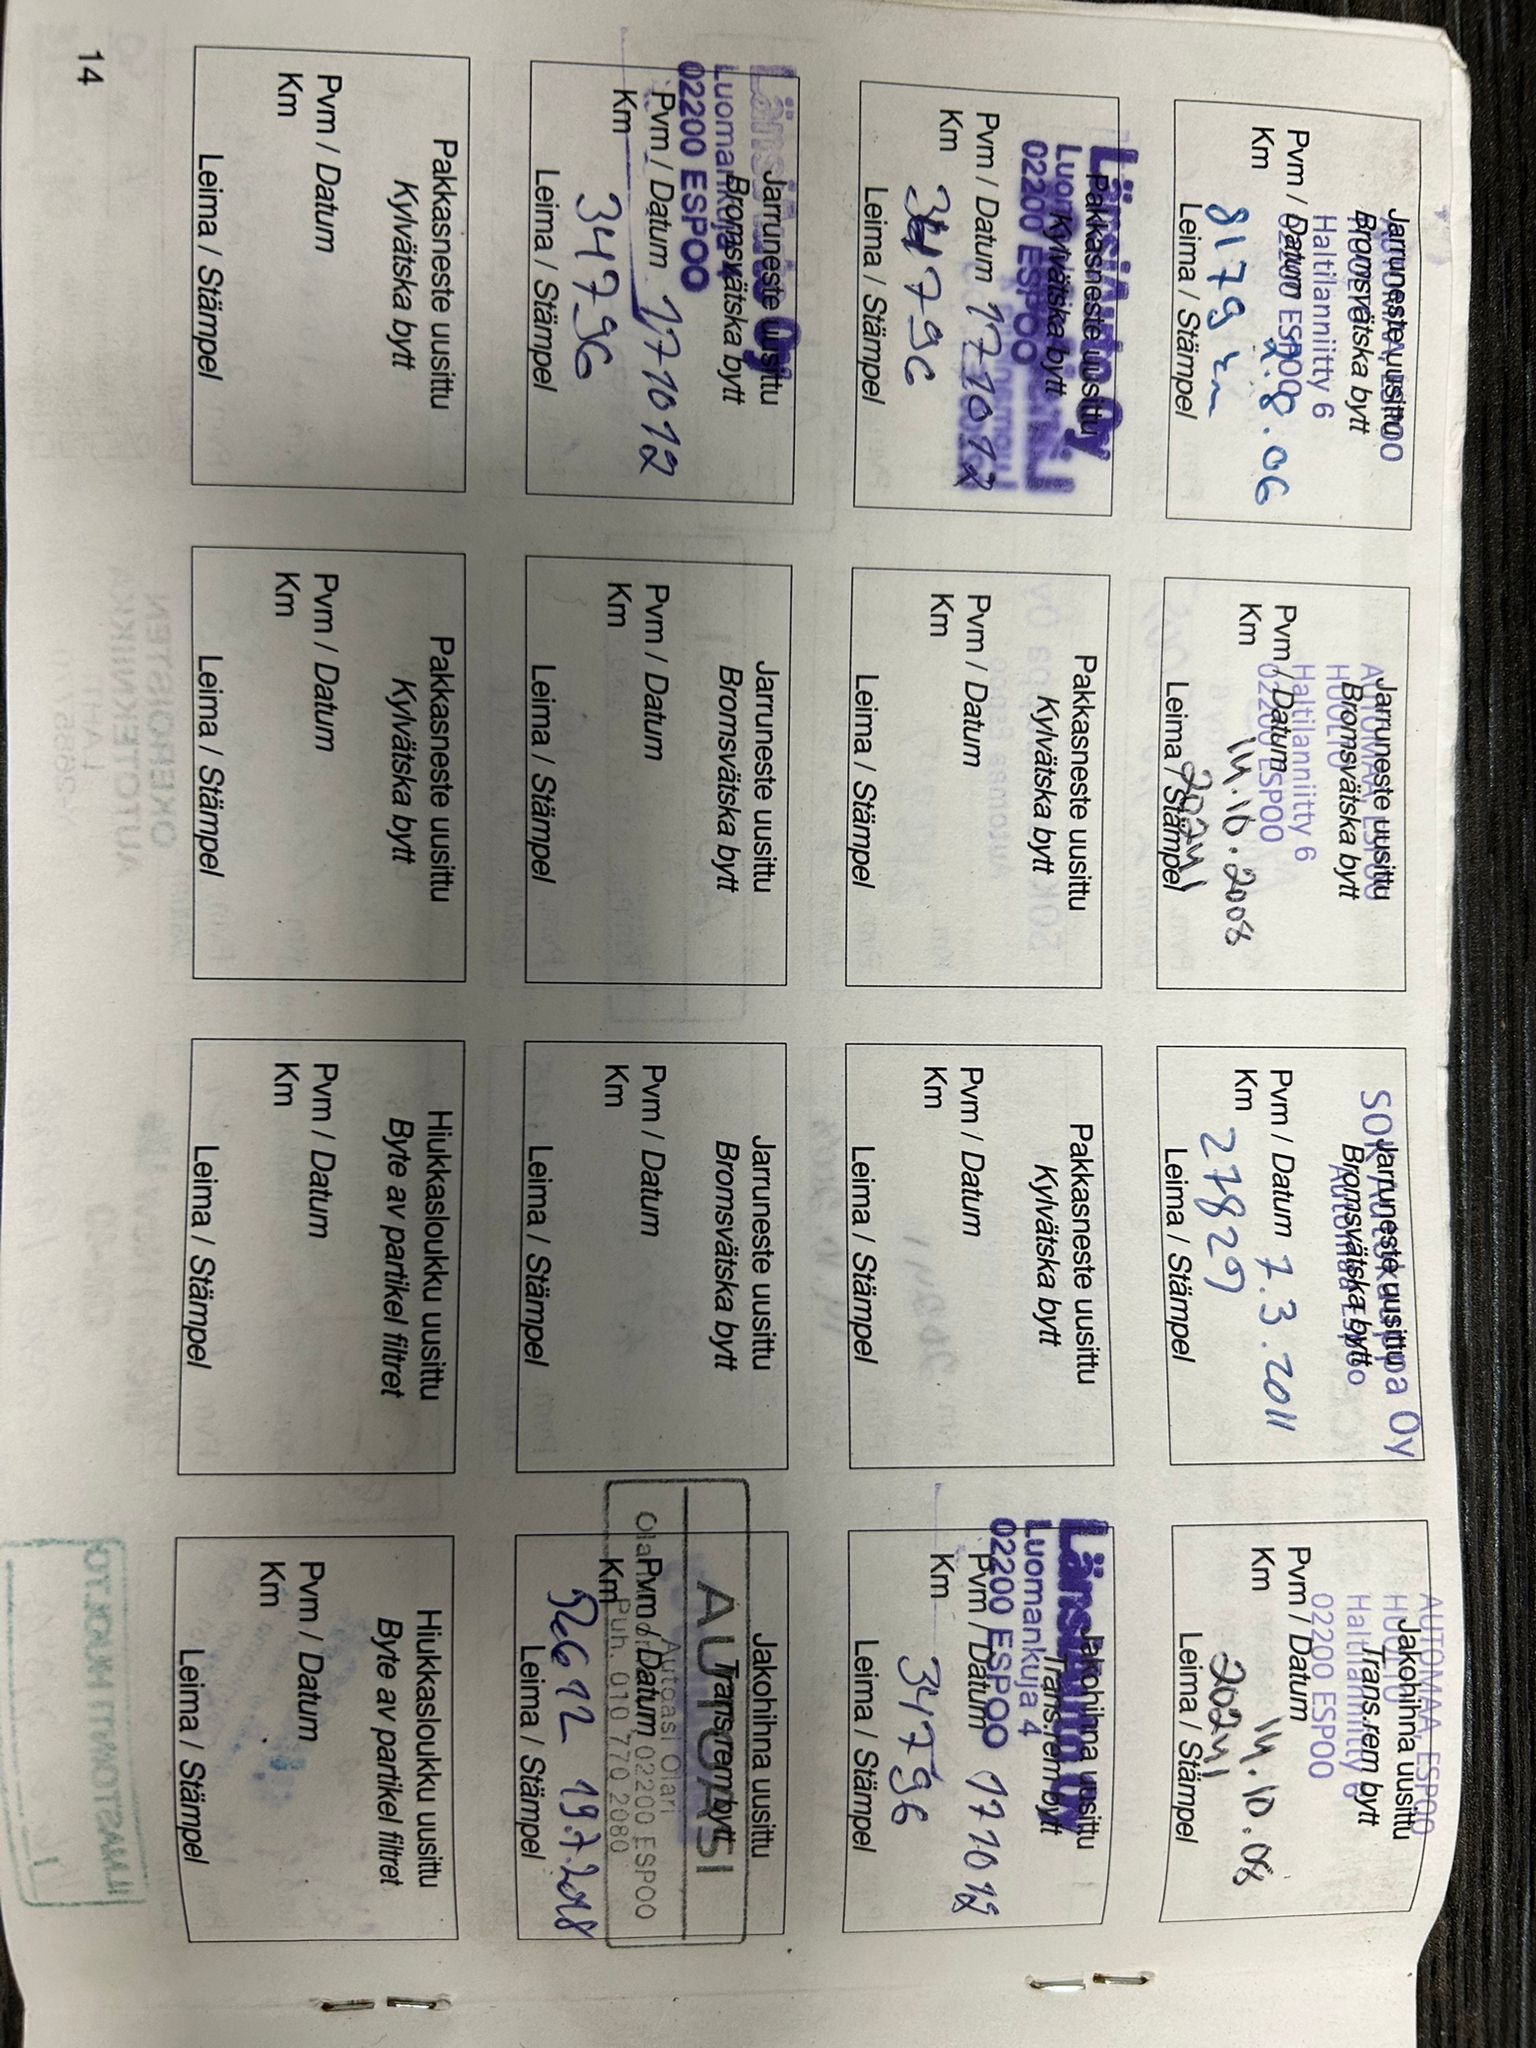 AUTOMAA, ESPOO
Haltilanniitty 6
02200 ESPOO
Jarruneste uusittu
Bromsvätska bytt
Pvm / Datum 2.8.06
Km 8179 km
Leima / Stämpel
AUTOMAA, ESPOO
HUOLTO
Haltilanniitty 6
02200 ESPOO
Jarruneste uusittu
Bromsvätska bytt
Pvm / Datum 14.10.2008
Km 20241
Leima / Stämpel
SOK Autokauppa Oy
Automaa Espoo
Jarruneste uusittu
Bromsvätska bytt
Pvm / Datum 7.3.2011
Km 27829
Leima / Stämpel
AUTOMAA, ESPOO
HUOLTO
Haltilanniitty 6
02200 ESPOO
Jakohihna uusittu
Trans.rem bytt
Pvm / Datum 14.10.08
Km 20241
Leima / Stämpel
LänsiAuto Oy
02200 ESPOO
Pakkasneste uusittu
Kylvätska bytt
Pvm / Datum 17 10 12
Km 34796
Leima / Stämpel
Pakkasneste uusittu
Kylvätska bytt
Pvm / Datum
Km
Leima / Stämpel
Pakkasneste uusittu
Kylvätska bytt
Pvm / Datum
Km
Leima / Stämpel
LänsiAuto Oy
Luomankuja 4
02200 ESPOO
Jakohihna uusittu
Trans.rem bytt
Pvm / Datum 17 10 12
Km 34796
Leima / Stämpel
LänsiAuto Oy
Luomankuja 4
02200 ESPOO
Jarruneste uusittu
Bromsvätska bytt
Pvm / Datum 17 10 12
Km 34796
Leima / Stämpel
Jarruneste uusittu
Bromsvätska bytt
Pvm / Datum
Km
Leima / Stämpel
Jarruneste uusittu
Bromsvätska bytt
Pvm / Datum
Km
Leima / Stämpel
AUTOASI
Autoasi Olari
02200 ESPOO
Puh. 010 770 2080
Jakohihna uusittu
Trans.rem bytt
Pvm / Datum
Km 19.7.2018
Leima / Stämpel
Pakkasneste uusittu
Kylvätska bytt
Pvm / Datum
Km
Leima / Stämpel
Pakkasneste uusittu
Kylvätska bytt
Pvm / Datum
Km
Leima / Stämpel
Hiukkasloukku uusittu
Byte av partikel filtret
Pvm / Datum
Km
Leima / Stämpel
Hiukkasloukku uusittu
Byte av partikel filtret
Pvm / Datum
Km
Leima / Stämpel
14